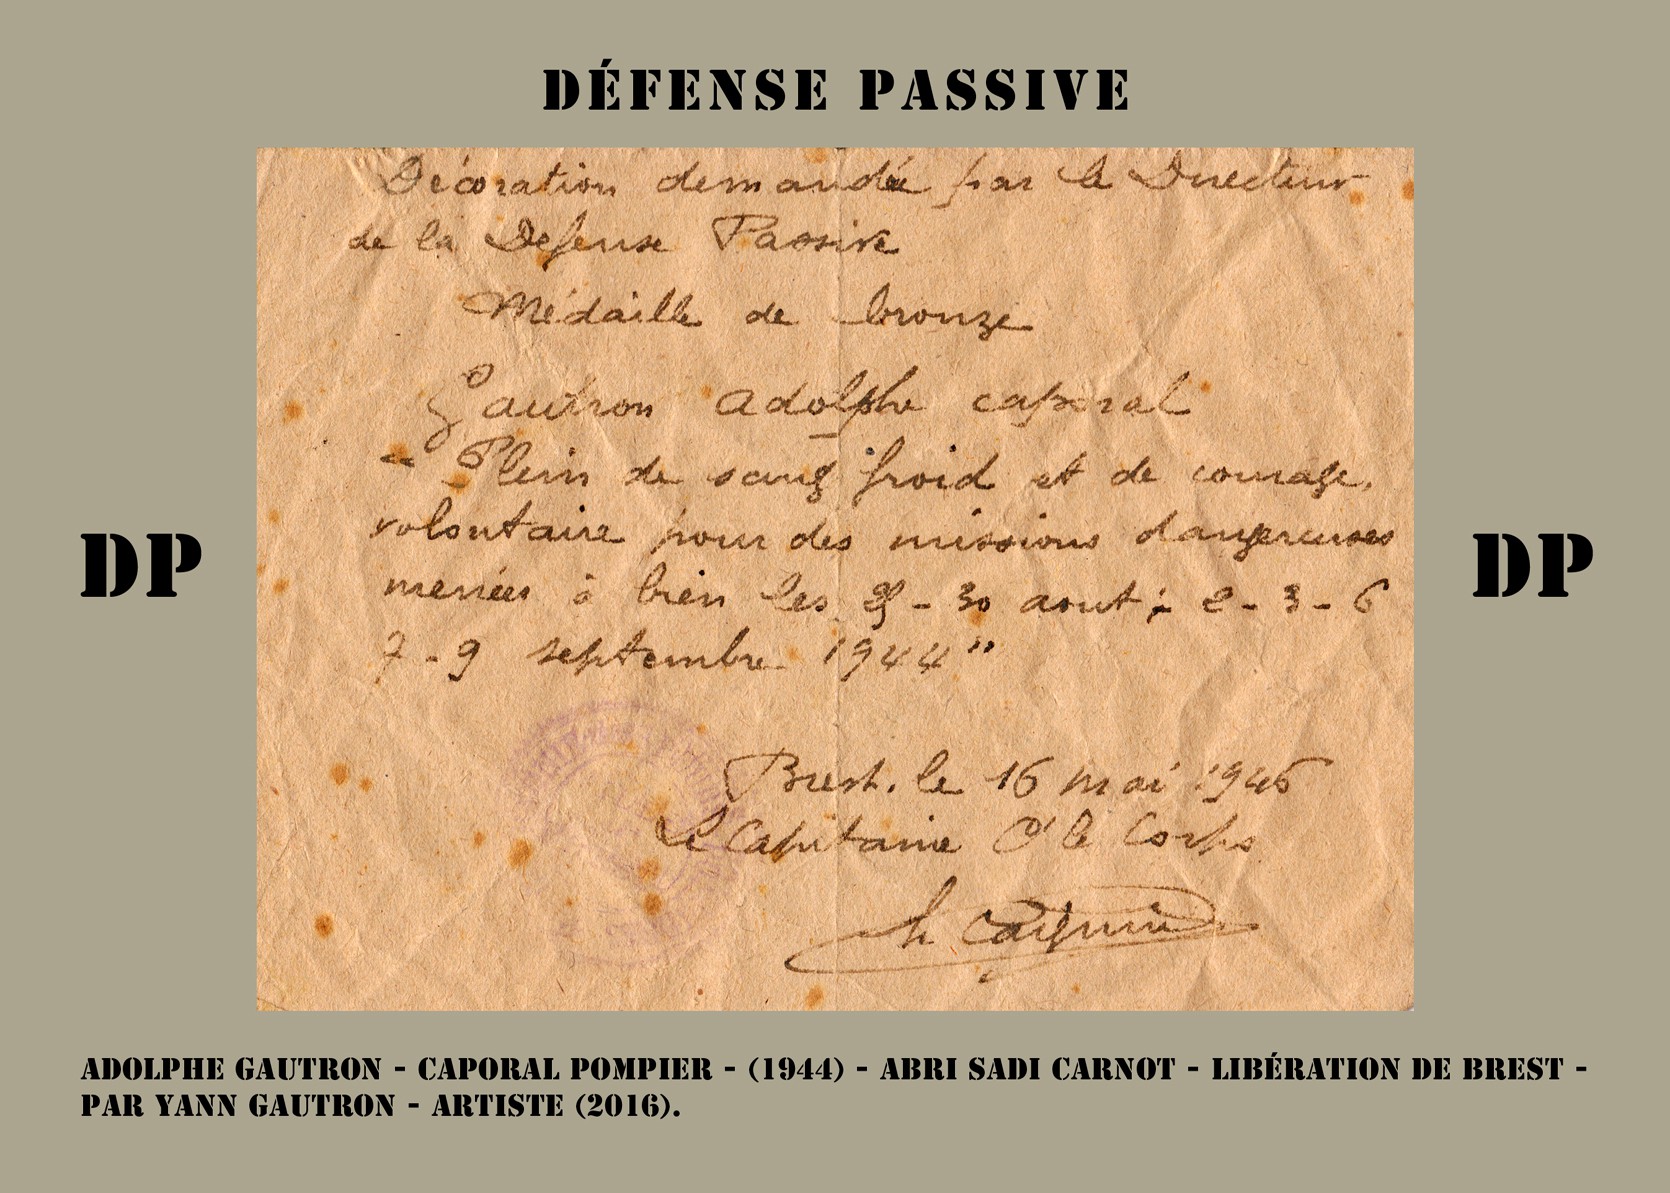 DÉFENSE PASSIVE
Décoration demandée par le Directeur
de la Defense Passive
Médaille de bronze
Gautron Adolphe caporal
DP
DP
"Plein de sang froid et de courage,
volontaire pour des missions dangereuses
menées à bien les - 30 aout; 2 - 3 - 6
7 - 9 septembre 1944"
Brest, le 16 mai 1945
Le Capitaine Ct le Corps
ADOLPHE GAUTRON - CAPORAL POMPIER - (1944) - ABRI SADI CARNOT - LIBÉRATION DE BREST -
PAR YANN GAUTRON - ARTISTE (2016).